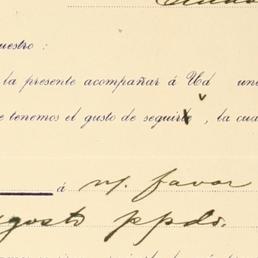 uestro :
la presente acompañar á Ud un
e tenemos el gusto de seguirle, la cua
á n/. favor
gosto ppdo.